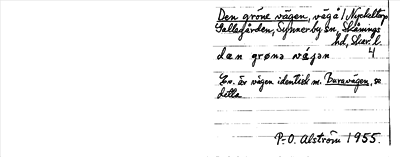 Den gröne vägen, väg å Nyckeltorp
Gallegården, Synnerby sn, Skånings
hd, Skar. l.
dæn grønə vä́jən 4
En. är vägen identisk m. Buravägen, se
detta
P.-O. Alström 1955.